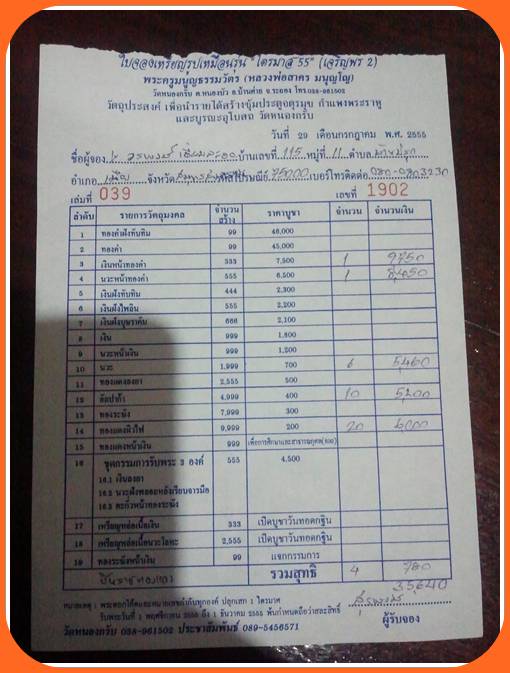 ใบจองเหรียญรูปเหมือนรุ่น "ไตรมาส 55" (เจริญพร 2)
พระครูมนูญธรรมวัตร (หลวงพ่อสาคร มนุญโญ)
วัดหนองกรับ ต.หนองบัว อ.บ้านค่าย จ.ระยอง โทร.038-961502
วัตถุประสงค์ เพื่อนำรายได้สร้างซุ้มประตูจตุรมุข กำแพงพระราหู
และบูรณะอุโบสถ วัดหนองกรับ
วันที่ 29 เดือนกรกฎาคม พ.ศ. 2555
ชื่อผู้จอง บ้านเลขที่ 115 หมู่ที่ 11 ตำบล
อำเภอ เมือง จังหวัด รหัสไปรษณีย์ 75000 เบอร์โทรติดต่อ
เล่มที่ 039 เลขที่ 1902
ลำดับ รายการวัตถุมงคล จำนวนสร้าง ราคาบูชา จำนวน จำนวนเงิน
1 ทองคำฝังทับทิม 99 46,000
2 ทองคำ 99 45,000
3 เงินหน้าทองคำ 333 7,500 1 9750
4 นวะหน้าทองคำ 555 6,500 1 8,450
5 เงินฝังทับทิม 444 2,300
6 เงินฝังไพลิน 555 2,200
7 เงินฝังบุษราคัม 666 2,100
8 เงิน 999 1,800
9 นวะหน้าเงิน 999 1,200
10 นวะ 1,999 700 6 5460
11 ทองแดงลงยา 2,555 500
12 อัลปาก้า 4,999 400 10 5,200
13 ทองระฆัง 7,999 300
14 ทองแดงผิวไฟ 9,999 200 20 6,000
15 ทองแดงหน้าเงิน 999 เพื่อการศึกษาและสาธารณกุศล(500)
16 ชุดกรรมการรับพระ 3 องค์ 555 4,500
16.1 เงินลงยา
16.2 นวะฝังพลอยหลังเรียบจารมือ
16.3 ตะกั่วหน้าทองระฆัง
17 เหรียญหล่อเนื้อเงิน 333 เปิดบูชาวันทอดกฐิน
18 เหรียญหล่อเนื้อนวะโลหะ 2,555 เปิดบูชาวันทอดกฐิน
19 ทองระฆังหน้าเงิน 99 แจกกรรมการ
รวมสุทธิ 4 780
35,640
หมายเหตุ : พระตอกโค๊ตและหมายเลขกำกับทุกองค์ ปลุกเสก 1 ไตรมาส
รับพระวันที่ 1 พฤศจิกายน 2555 ถึง 1 ธันวาคม 2555 พ้นกำหนดถือว่าสละสิทธิ์
วัดหนองกรับ 038-961502 ประชาสัมพันธ์ 089-5456571 ผู้รับจอง